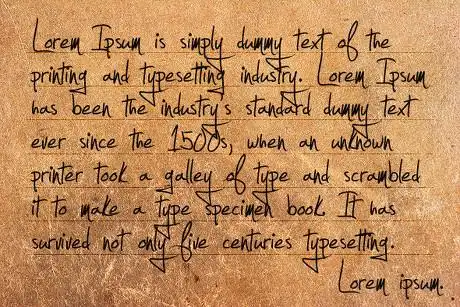 Lorem Ipsum is simply dummy text of the
printing and typesetting industry. Lorem Ipsum
has been the industry's standard dummy text
ever since the 1500s, when an unknown
printer took a galley of type and scrambled
it to make a type specimen book. It has
survived not only five centuries typesetting.
Lorem ipsum.